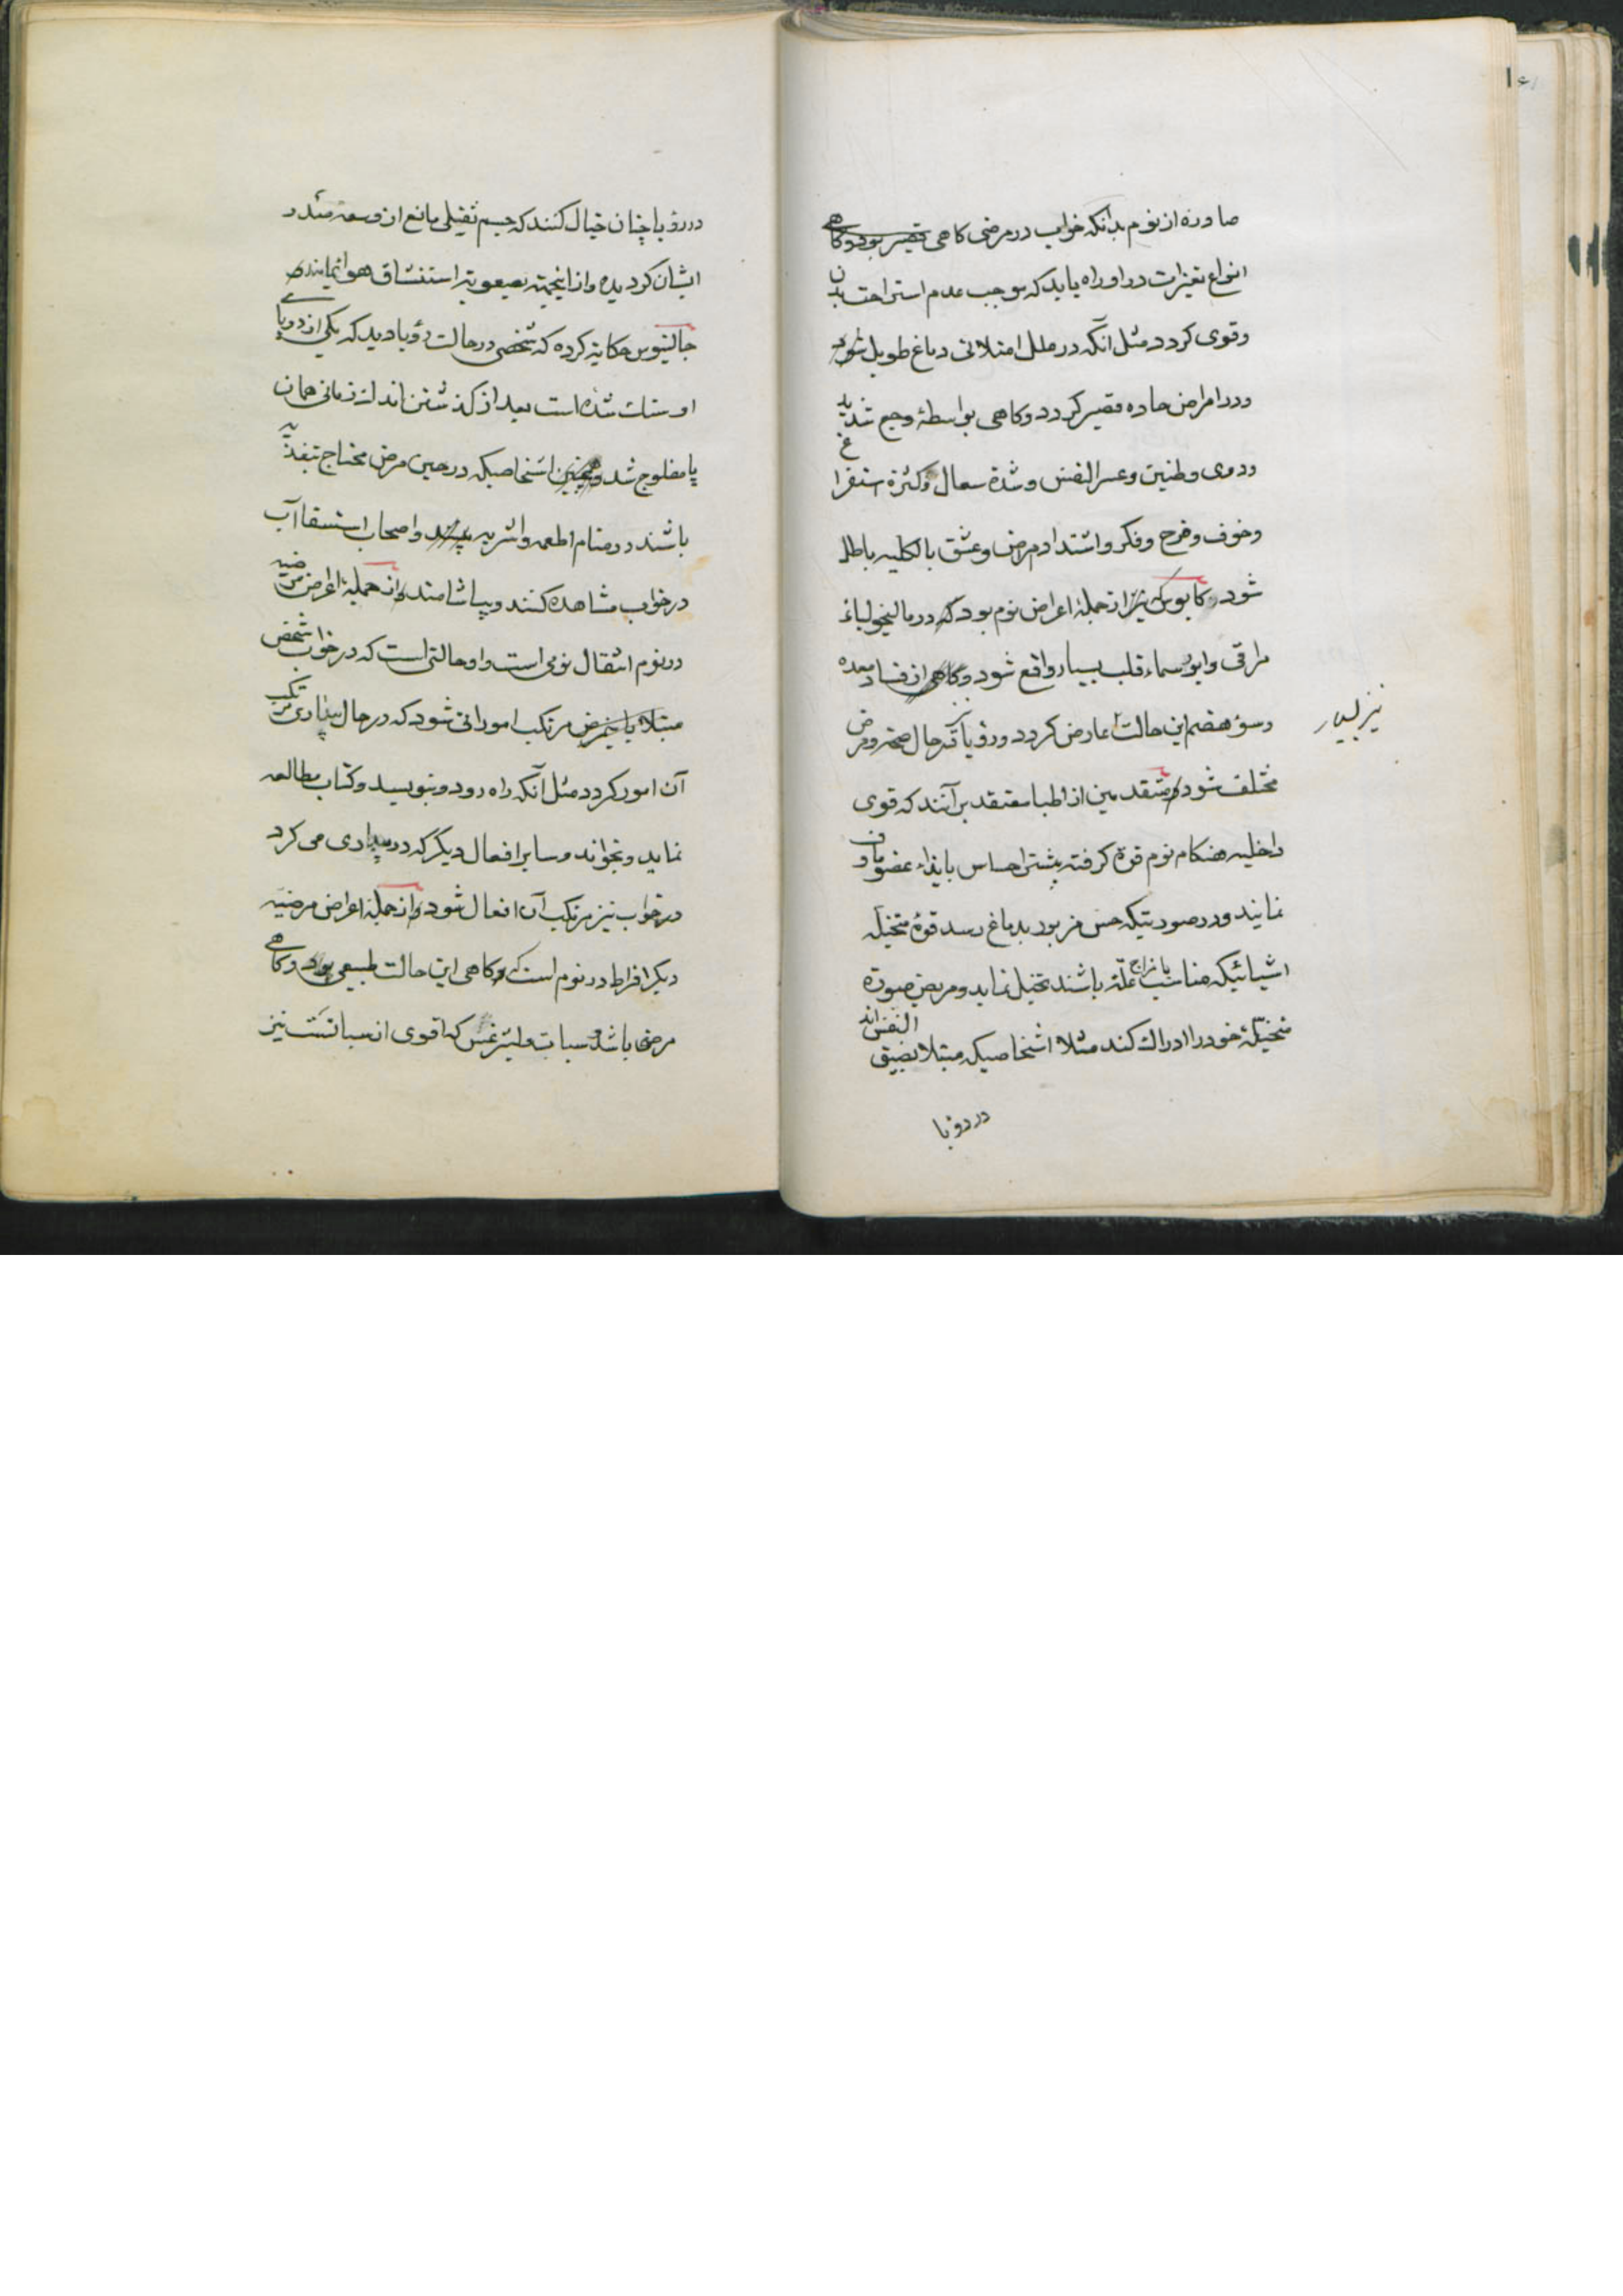 صادره از نوم بدانکه خواب در مرضی کاهی قصیر بود و کاهی
انواع تغیرات در او راه یابد که موجب عدم استراحت بدن
و قوی کردد مثل آنکه در علل امتلائی دماغ طویل شود
و در امراض حاده قصیر کردد و کاهی بواسطهٔ وجع شدید
و دوی و طنین و عسر النفس و شدة سعال و کثرة استفراغ
و خوف و فرح و فکر و اشتداد مرض و عشق بالکلیه باطل
شود کابوس نیز از جملهٔ اعراض نوم بود که در مالیخولیاء
مراقی و ابورسماء قلب بسیار واقع شود و کاهی از فساد معده
و سوء هضم این حالت عارض کردد و رؤیا که در حال صحة و مرض
مختلف شود متقدمین از اطبا معتقد برآنند که قوی
داخلیه هنکام نوم قوة کرفته بیشتر احساس بایذاء عضو مأوف
نمایند و در صورتیکه حس مزبور بدماغ رسد قوهٔ متخیله
اشیائیکه مناسب با مزاج علة باشند تخیل نماید و مریض صورة
متخیلهٔ خود را ادراک کند مثلا اشخاصیکه مبتلا بضیق النفس اند
در رؤیا
نیز بسیار
در رؤیا چنان خیال کنند که جسم ثقیلی مانع از وسعة صدر
ایشان کردیده و از اینجهته بصعوبة استنشاق هوا نمایند
جالینوس حکایة کرده که شخصی در حالت رؤیا دید که یکی از دو پای
او سنك شده است بعد از کذشتن اندك زمانی همان
پا مفلوج شد و همچنین اشخاصیکه در حین مرض محتاج بتغذیه
باشند در منام اطعمه و اشربه بینند و اصحاب استسقا آب
در خواب مشاهده کنند و بیاشامند و از جملهٔ اعراض مرضیه
در نوم انتقال نومی است و او حالتی است که در خواب شخص
مبتلا باین مرض مرتکب امور اتی شود که در حال بیداری مرتکب
آن امور کردد مثل آنکه راه رود و بنویسد و کتاب مطالعه
نماید و بخواند و سایر افعال دیگر که در بیداری می کرد
در خواب نیز مرتکب آن افعال شود و از جملهٔ اعراض مرضیه
دیکر افراط در نوم است که و کاهی این حالت طبیعی بود و کاهی
مرضی باشد و سبات و لیثرغس که اقوی از سباتست نیز